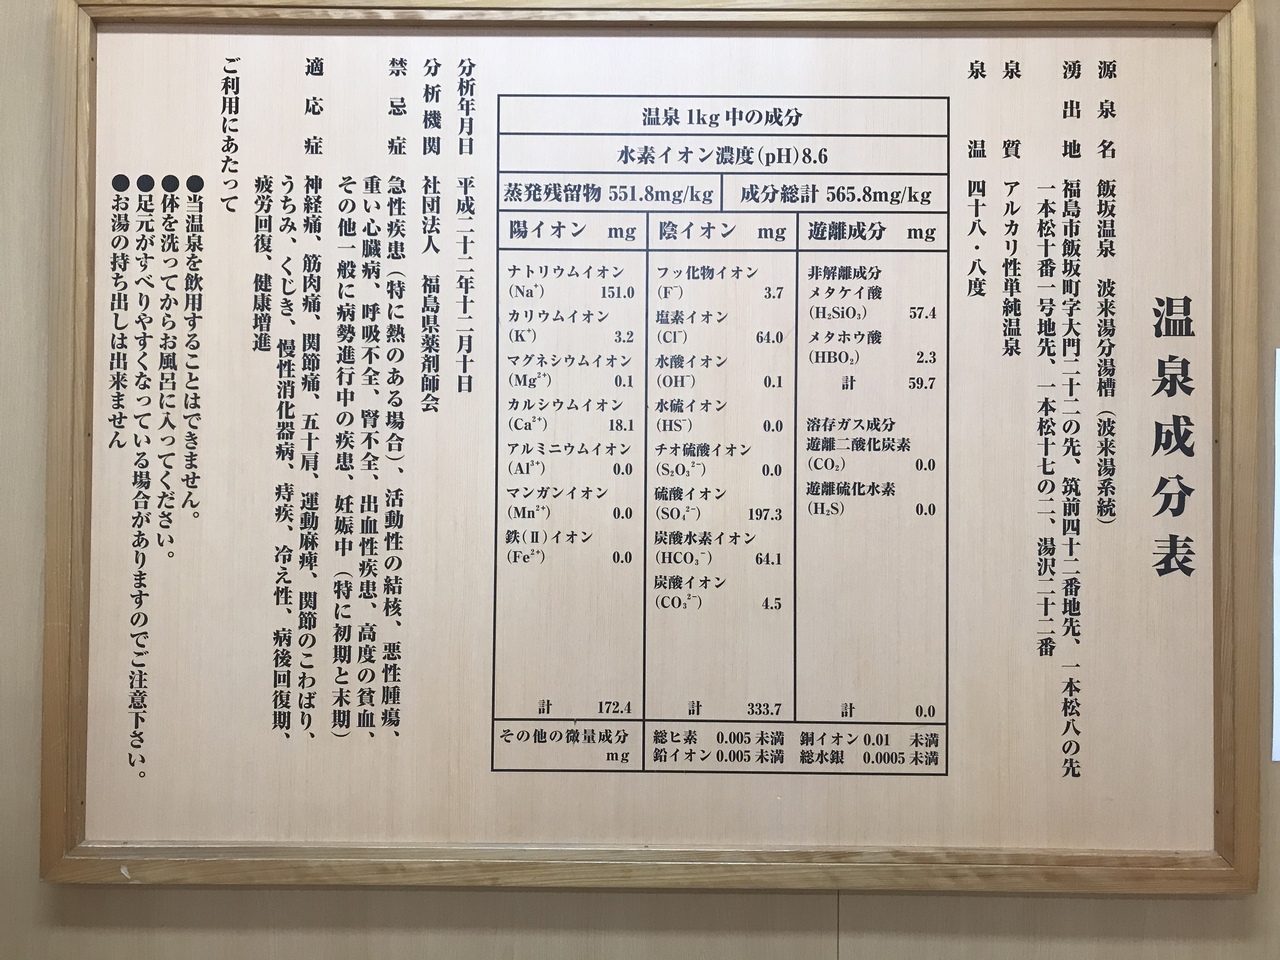 温泉成分表
源泉名 飯坂温泉 波来湯分湯槽（波来湯系統）
湧出地 福島市飯坂町字大門二十二の先、筑前四十二番地先、一本松八の先
一本松十番一号地先、一本松十七の二、湯沢二十二番
泉質 アルカリ性単純温泉
泉温 四十八・八度
温泉1kg中の成分
水素イオン濃度(pH)8.6
蒸発残留物 551.8mg/kg 成分総計 565.8mg/kg
陽イオン mg
ナトリウムイオン
(Na⁺) 151.0
カリウムイオン
(K⁺) 3.2
マグネシウムイオン
(Mg²⁺) 0.1
カルシウムイオン
(Ca²⁺) 18.1
アルミニウムイオン
(Al³⁺) 0.0
マンガンイオン
(Mn²⁺) 0.0
鉄(Ⅱ)イオン
(Fe²⁺) 0.0
計 172.4
陰イオン mg
フッ化物イオン
(F⁻) 3.7
塩素イオン
(Cl⁻) 64.0
水酸イオン
(OH⁻) 0.1
水硫イオン
(HS⁻) 0.0
チオ硫酸イオン
(S₂O₃²⁻) 0.0
硫酸イオン
(SO₄²⁻) 197.3
炭酸水素イオン
(HCO₃⁻) 64.1
炭酸イオン
(CO₃²⁻) 4.5
計 333.7
遊離成分 mg
非解離成分
メタケイ酸
(H₂SiO₃) 57.4
メタホウ酸
(HBO₂) 2.3
計 59.7
溶存ガス成分
遊離二酸化炭素
(CO₂) 0.0
遊離硫化水素
(H₂S) 0.0
計 0.0
その他の微量成分
mg
総ヒ素 0.005 未満 銅イオン 0.01 未満
鉛イオン 0.005 未満 総水銀 0.0005 未満
分析年月日 平成二十二年十二月十日
分析機関 社団法人 福島県薬剤師会
禁忌症 急性疾患（特に熱のある場合）、活動性の結核、悪性腫瘍、
重い心臓病、呼吸不全、腎不全、出血性疾患、高度の貧血、
その他一般に病勢進行中の疾患、妊娠中（特に初期と末期）
適応症 神経痛、筋肉痛、関節痛、五十肩、運動麻痺、関節のこわばり、
うちみ、くじき、慢性消化器病、痔疾、冷え性、病後回復期、
疲労回復、健康増進
ご利用にあたって
●当温泉を飲用することはできません。
●体を洗ってからお風呂に入ってください。
●足元がすべりやすくなっている場合がありますのでご注意下さい。
●お湯の持ち出しは出来ません